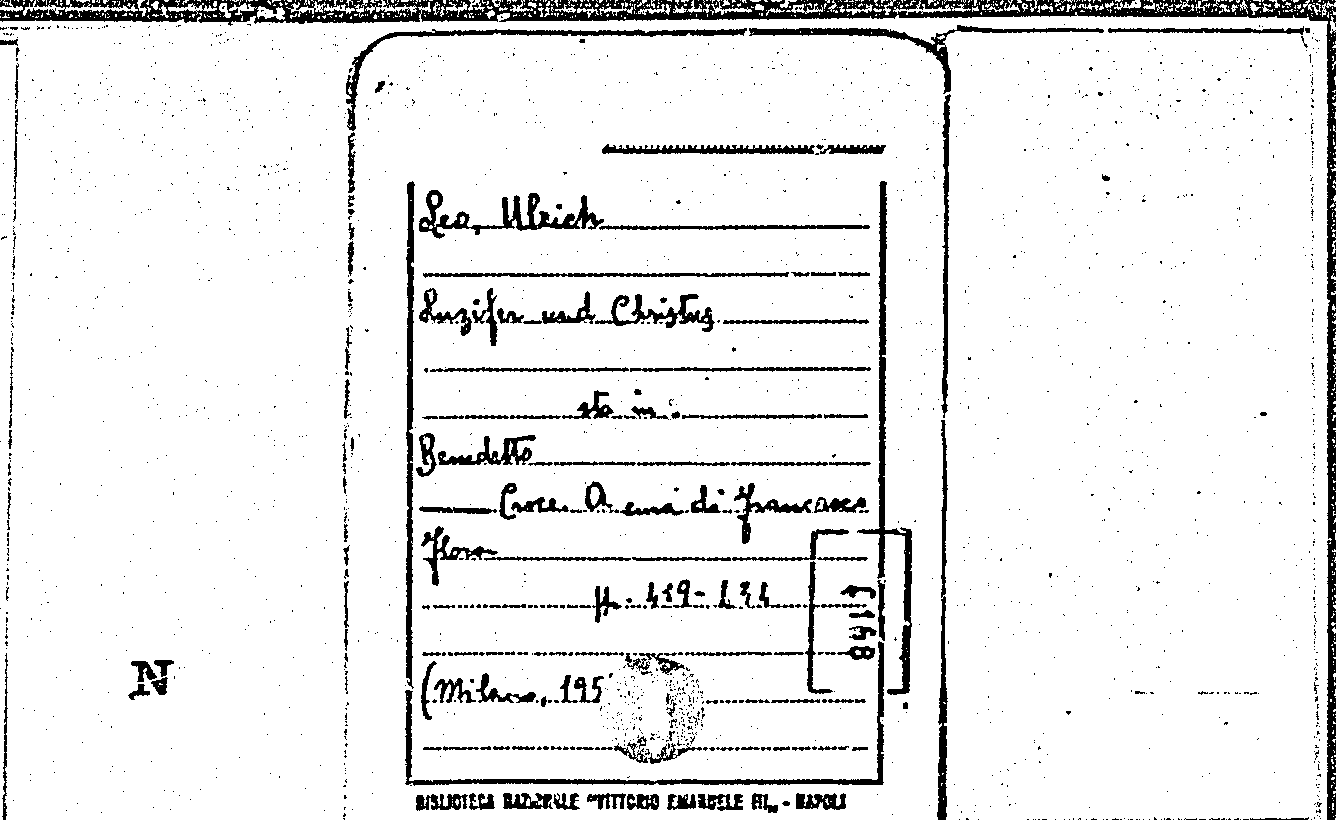 Leo, Ulrich
Luzifer und Christus
sta in:
Benedetto
Croce. A cura di Francesco
Flora
(Milano, 195
N
BIBLIOTECA NAZIONALE "VITTORIO EMANUELE III" - NAPOLI